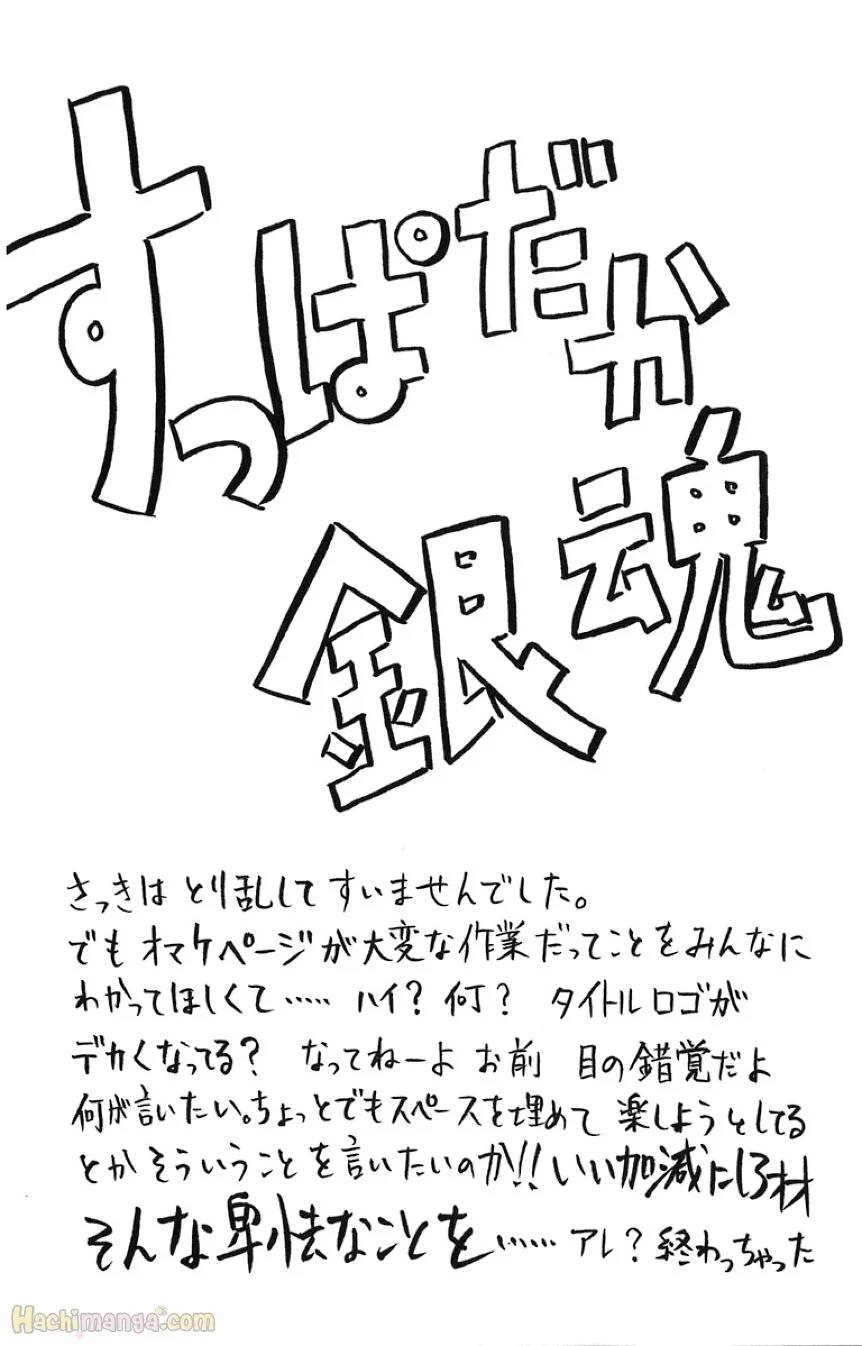 すっぱだか
銀魂
さっきは とり乱して すいませんでした。
でも オマケページが大変な作業だってことをみんなに
わかってほしくて…… ハイ？ 何？ タイトルロゴが
デカくなってる？ なってねーよ お前 目の錯覚だよ
何が言いたい。ちょっとでもスペースを埋めて 楽しようとしてる
とか そういうことを言いたいのか!! いい加減にしろオオ
そんな卑怯なことを…… アレ？ 終わっちゃった
Hachimanga.com